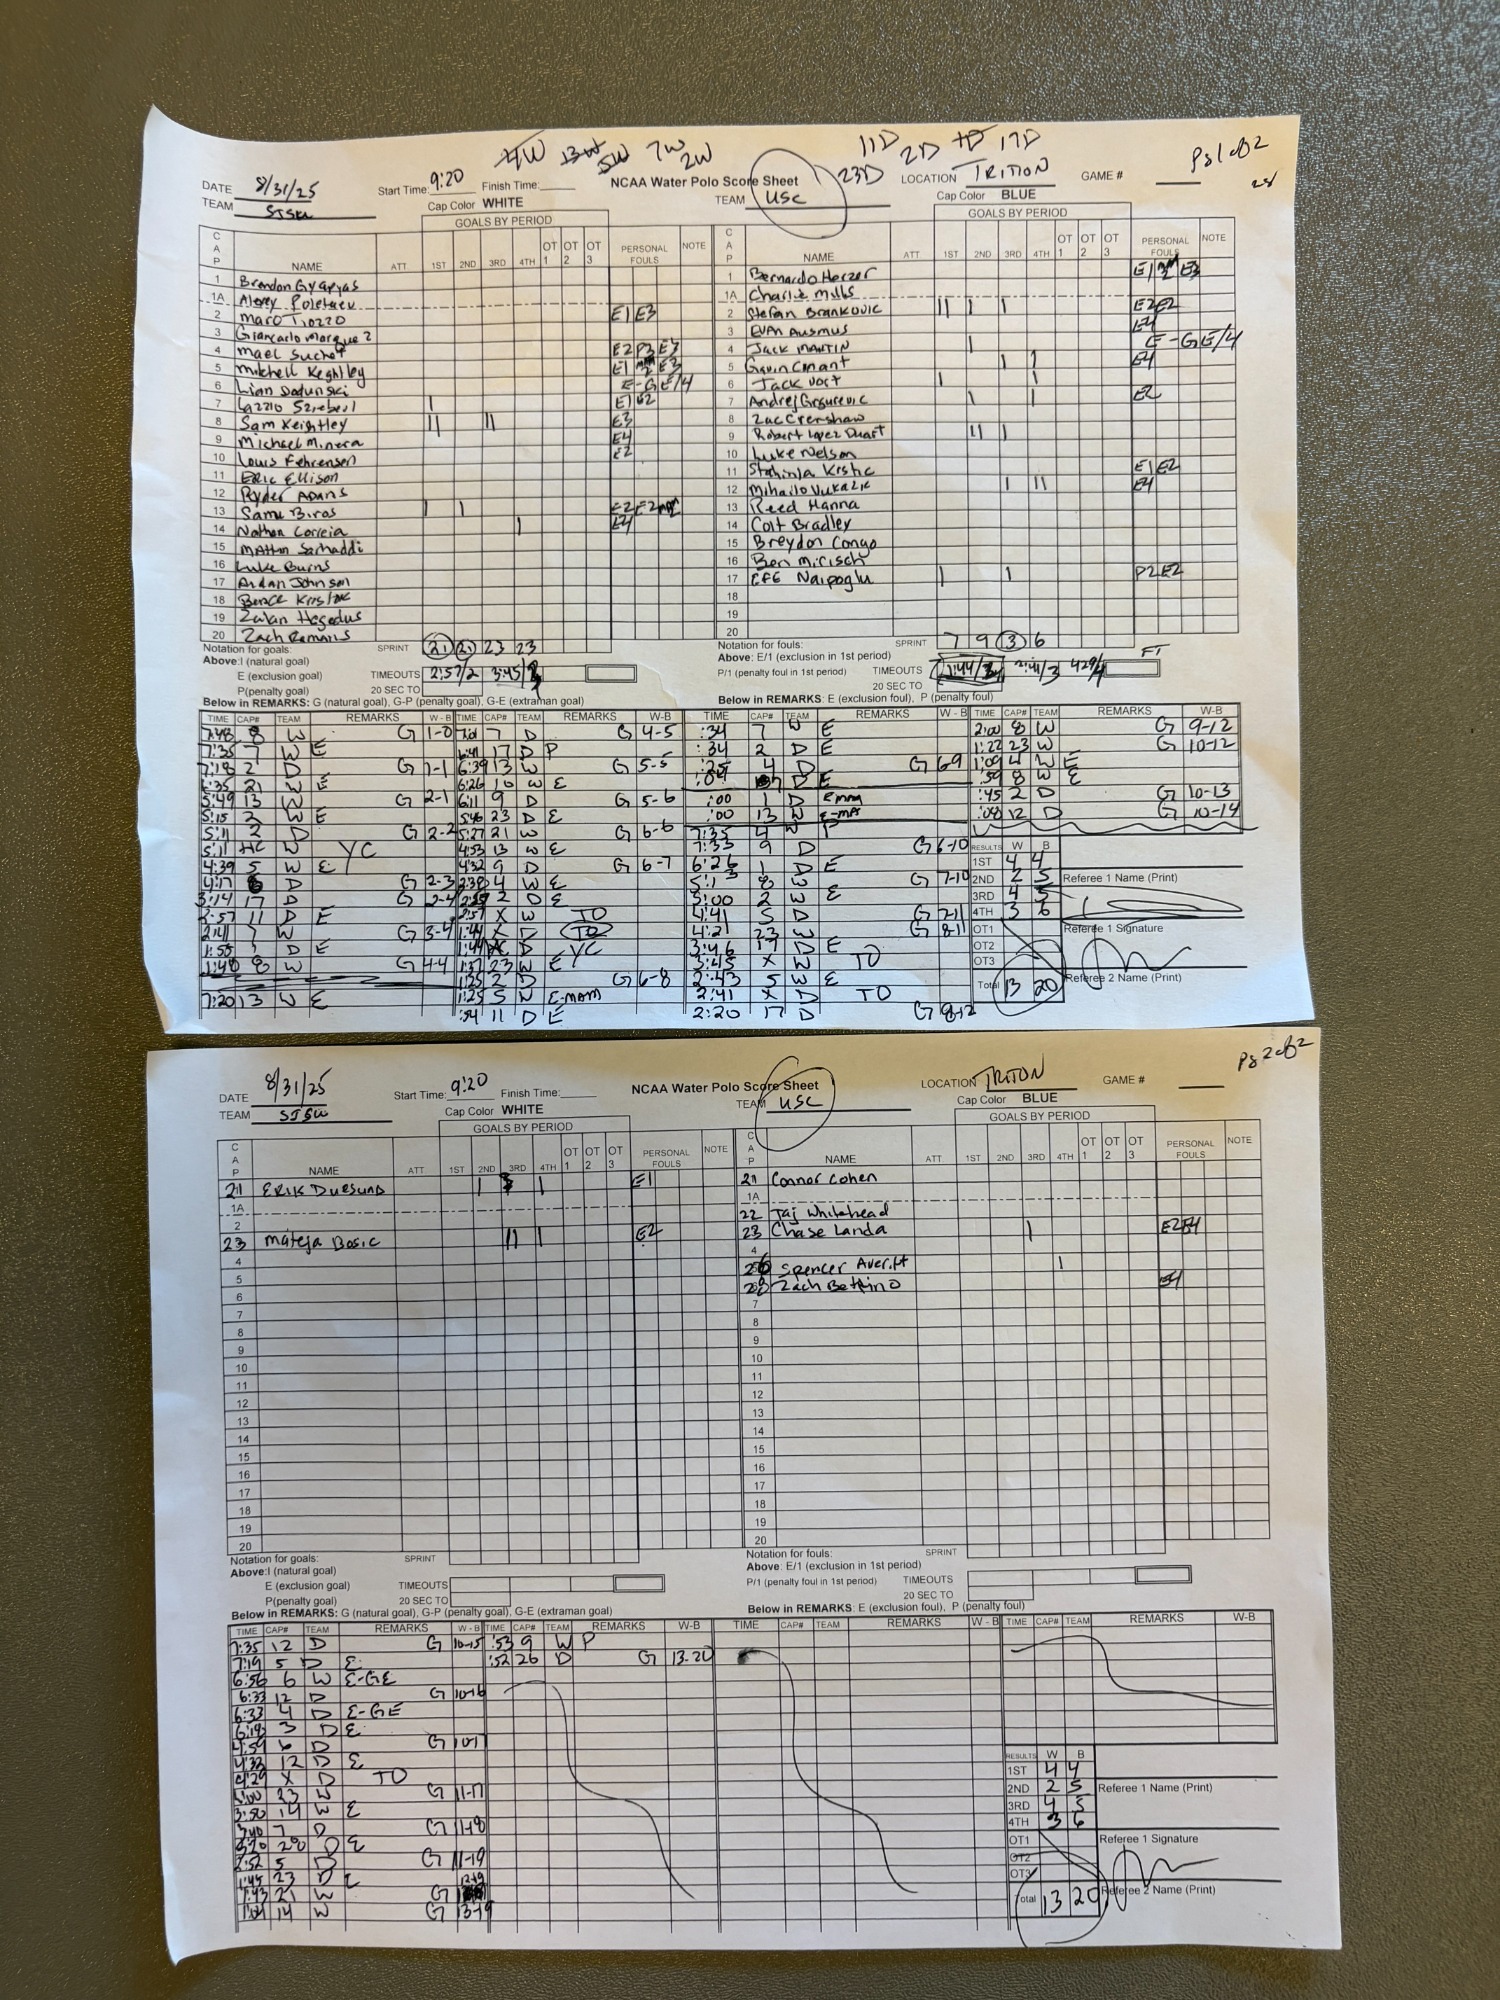 4W 13W 5W 7W 2W 11D 2D 1D 17D 23D
Pg 1 of 2
DATE 8/31/25 Start Time: 9:20 Finish Time: NCAA Water Polo Score Sheet LOCATION TRITON GAME #
TEAM Cap Color WHITE TEAM USC Cap Color BLUE
GOALS BY PERIOD GOALS BY PERIOD
CAP NAME ATT 1ST 2ND 3RD 4TH OT 1 OT 2 OT 3 PERSONAL FOULS NOTE CAP NAME ATT 1ST 2ND 3RD 4TH OT 1 OT 2 OT 3 PERSONAL FOULS NOTE
1 Brandon Gyaryas 1 Bernardo Herzer E1 E3
1A Alexey Poletaev 1A Charlie Mills
2 Marc Tiozzo E1 E3 2 Stefan Brankovic II I I E2 E2
3 Giancarlo Marquez 3 Evan Ausmus E4
4 Mael Suchet E2 P3 E3 4 Jack Martin I E-GE/4
5 Mitchell Keghtley E1 E3 5 Gavin Conant I I E4
6 Lian Dadunski E-GE/4 6 Jack Vort I I
7 Lazzlo Szieberl I E1 7 Andrej Grgurevic I I E2
8 Sam Keightley II II E3 8 Zac Crenshaw
9 Michael Minera E4 9 Robert Lopez Duart II I
10 Louis Fehrensen E2 10 Luke Nelson
11 Eric Ellison 11 Strahinja Krstic E1 E2
12 Ryder Adans 12 Mihailo Vukazic I II E4
13 Samu Biros I I E2 E2 13 Reed Hanna
14 Nathan Correia I E4 14 Colt Bradley
15 Mattin Sarhaddi 15 Breydon Congo
16 Luke Burns 16 Ben Mirisch
17 Aidan Johnson 17 EFE Naipoglu I I P2 E2
18 18
19 Zalan Hegedus 19
20 20
Notation for goals: SPRINT 21 21 23 23 Notation for fouls: SPRINT 7 9 3 6
Above: I (natural goal) Above: E/1 (exclusion in 1st period)
E (exclusion goal) TIMEOUTS 2:57/2 3:45/3 P/1 (penalty foul in 1st period) TIMEOUTS 1:44/2 2:41/3 4:29/4
P(penalty goal) 20 SEC TO 20 SEC TO
Below in REMARKS: G (natural goal), G-P (penalty goal), G-E (extraman goal) Below in REMARKS: E (exclusion foul), P (penalty foul)
TIME CAP# TEAM REMARKS W - B TIME CAP# TEAM REMARKS W-B TIME CAP# TEAM REMARKS W - B TIME CAP# TEAM REMARKS W-B
7:48 8 W G 1-0 7:01 7 D G 4-5 :34 7 W E 2:00 8 W G 9-12
7:35 7 W E 6:41 17 D P :34 2 D E 1:22 23 W G 10-12
7:18 2 D G 1-1 6:39 13 W G 5-5 :25 4 D G 6-9 1:09 4 W E
6:35 21 W E 6:26 10 W E :04 7 D E :59 8 W E
5:49 13 W G 2-1 6:11 9 D G 5-6 :00 1 D :45 2 D G 10-13
5:15 2 W E 5:46 23 D E :00 13 W :08 12 D G 10-14
5:11 2 D G 2-2 5:27 21 W G 6-6 7:35 4 W P
5:11 HC W YC 4:53 13 W E 7:33 9 D G 6-10 RESULTS W B
4:39 5 W E 4:32 9 D G 6-7 6:26 1 D E 1ST 4 4
4:17 6 D G 2-3 2:38 4 W E 5:13 8 W G 7-10 2ND 2 5 Referee 1 Name (Print)
3:14 17 D G 2-4 2:57 2 D E 5:00 2 W E 3RD 4 5
2:57 11 D E 2:57 X W TO 4:41 5 D G 7-11 4TH 3 6
2:41 7 W G 3-4 1:44 X D TO 4:21 23 W G 8-11 OT1 Referee 1 Signature
1:58 1 D E 1:44 HC D YC 3:46 17 D E OT2
1:40 8 W G 4-4 1:37 23 W E 3:45 X W TO OT3
1:25 2 D G 6-8 2:43 5 W E Total 13 20 Referee 2 Name (Print)
7:20 13 W E 1:25 5 W E-MAM 2:41 X D TO
:54 11 D E 2:20 17 D G 8-12
Pg 2 of 2
DATE 8/31/25 Start Time: 9:20 Finish Time: NCAA Water Polo Score Sheet LOCATION TRITON GAME #
TEAM SJSU Cap Color WHITE TEAM USC Cap Color BLUE
GOALS BY PERIOD GOALS BY PERIOD
CAP NAME ATT 1ST 2ND 3RD 4TH OT 1 OT 2 OT 3 PERSONAL FOULS NOTE CAP NAME ATT 1ST 2ND 3RD 4TH OT 1 OT 2 OT 3 PERSONAL FOULS NOTE
21 Erik Duesund I I E1 21 Connor Cohen
1A 1A
2 22 Taj Whitehead
23 Mateja Bosic II I E2 23 Chase Landa I E2 E4
4 4
5 26 Spencer Averitt I
6 28 Zach Bettino E4
7 7
8 8
9 9
10 10
11 11
12 12
13 13
14 14
15 15
16 16
17 17
18 18
19 19
20 20
Notation for goals: SPRINT Notation for fouls: SPRINT
Above: I (natural goal) Above: E/1 (exclusion in 1st period)
E (exclusion goal) TIMEOUTS P/1 (penalty foul in 1st period) TIMEOUTS
P(penalty goal) 20 SEC TO 20 SEC TO
Below in REMARKS: G (natural goal), G-P (penalty goal), G-E (extraman goal) Below in REMARKS: E (exclusion foul), P (penalty foul)
TIME CAP# TEAM REMARKS W - B TIME CAP# TEAM REMARKS W-B TIME CAP# TEAM REMARKS W - B TIME CAP# TEAM REMARKS W-B
7:35 12 D G 10-15 :53 9 W P
7:19 5 D E :52 26 D G 13-20
6:56 6 W E-GE
6:33 12 D G 10-16
6:33 4 D E-GE
6:18 3 D E
4:59 6 D G
4:32 12 D E
4:29 X D TO
4:00 23 W G 11-17
3:50 14 W E RESULTS W B
3:40 7 D G 11-18 1ST 4 4
28 D E 2ND 2 5 Referee 1 Name (Print)
2:52 5 D G 11-19 3RD 4 5
1:45 23 D E 4TH 3 6
1:43 21 W G 12-19 OT1 Referee 1 Signature
1:04 14 W G 13-19 OT2
OT3
Total 13 20 Referee 2 Name (Print)